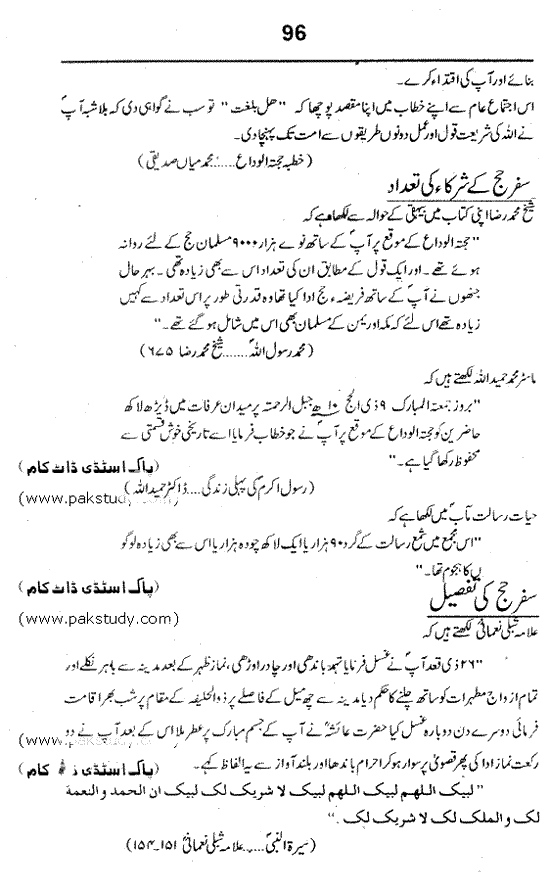 96
بنائے اور آپ کی اقتداء کرے۔
اس اجتماع عام سے اپنے خطاب میں اپنا مقصد پوچھا کہ "ھل بلغت" تو سب نے گواہی دی کہ بلاشبہ آپؐ
نے اللہ کی شریعت قول اور عمل دونوں طریقوں سے امت تک پہنچا دی۔
(خطبہ حجتہ الوداع.....: محمد میاں صدیقی)
سفر حج کے شرکاء کی تعداد
شیخ محمد رضا اپنی کتاب میں بیہقی کے حوالہ سے لکھا ہے کہ
"حجتہ الوداع کے موقع پر آپؐ کے ساتھ نوے ہزار ۹۰۰۰ مسلمان حج کے لئے روانہ
ہوئے تھے۔ اور ایک قول کے مطابق ان کی تعداد اس سے بھی زیادہ تھی۔ بہر حال
جنھوں نے آپؐ کے ساتھ فریضہء حج ادا کیا تھا وہ قدرتی طور پر اس تعداد سے کہیں
زیادہ تھے اس لئے کہ مکہ اور یمن کے مسلمان بھی اس میں شامل ہو گئے تھے۔"
(محمد رسول اللہؐ.......شیخ محمد رضا ۶۷۵)
ماسٹر محمد حمید اللہ لکھتے ہیں کہ
"بروز جمعتہ المبارک ۹ ذی الحج ۱۰ھ جبل الرحمتہ پر میدان عرفات میں ڈیڑھ لاکھ
حاضرین کو حجتہ الوداع کے موقع پر آپؐ نے جو خطاب فرمایا اسے تاریخی خوش قسمتی سے
محفوظ رکھا گیا ہے۔"
(پاک اسٹڈی ڈاٹ کام)
(رسول اکرم کی پہلی زندگی....ڈاکٹر حمید اللہ)
(www.pakstudy.com)
حیات رسالت مآبؐ میں لکھا ہے کہ
"اس مجمع میں شمع رسالت کے گرد ۹۰ ہزار یا ایک لاکھ چودہ ہزار یا اس سے بھی زیادہ لوگو
ں کا ہجوم تھا۔"
(پاک اسٹڈی ڈاٹ کام)
سفر حج کی تفصیل
(www.pakstudy.com)
علامہ شبلی نعمانیؒ لکھتے ہیں کہ
"۲۶ ذی قعد آپؐ نے غسل فرمایا تہمد باندھی اور چادر اوڑھی، نماز ظہر کے بعد مدینہ سے باہر نکلے اور
تمام ازواج مطہرات کو ساتھ چلنے کا حکم دیا مدینہ سے چھ میل کے فاصلے پر ذوالحلیفہ کے مقام پر شب بھر اقامت
فرمائی دوسرے دن دوبارہ غسل کیا حضرت عائشہؓ نے آپ کے جسم مبارک پر عطر ملا اس کے بعد آپؐ نے دو
(www.pakstudy.c
رکعت نماز ادا کی پھر قصویٰ پر سوار ہو کر احرام باندھا اور بلند آواز سے یہ الفاظ کہے۔
(پاک اسٹڈی ڈاٹ کام)
"لبیک اللہم لبیک اللہم لبیک لا شریک لک لبیک ان الحمد و النعمة
لک و الملک لک لا شریک لک۔"
(سیرۃ النبیؐ.....علامہ شبلی نعمانیؒ ۱۵۱۔۱۵۴)